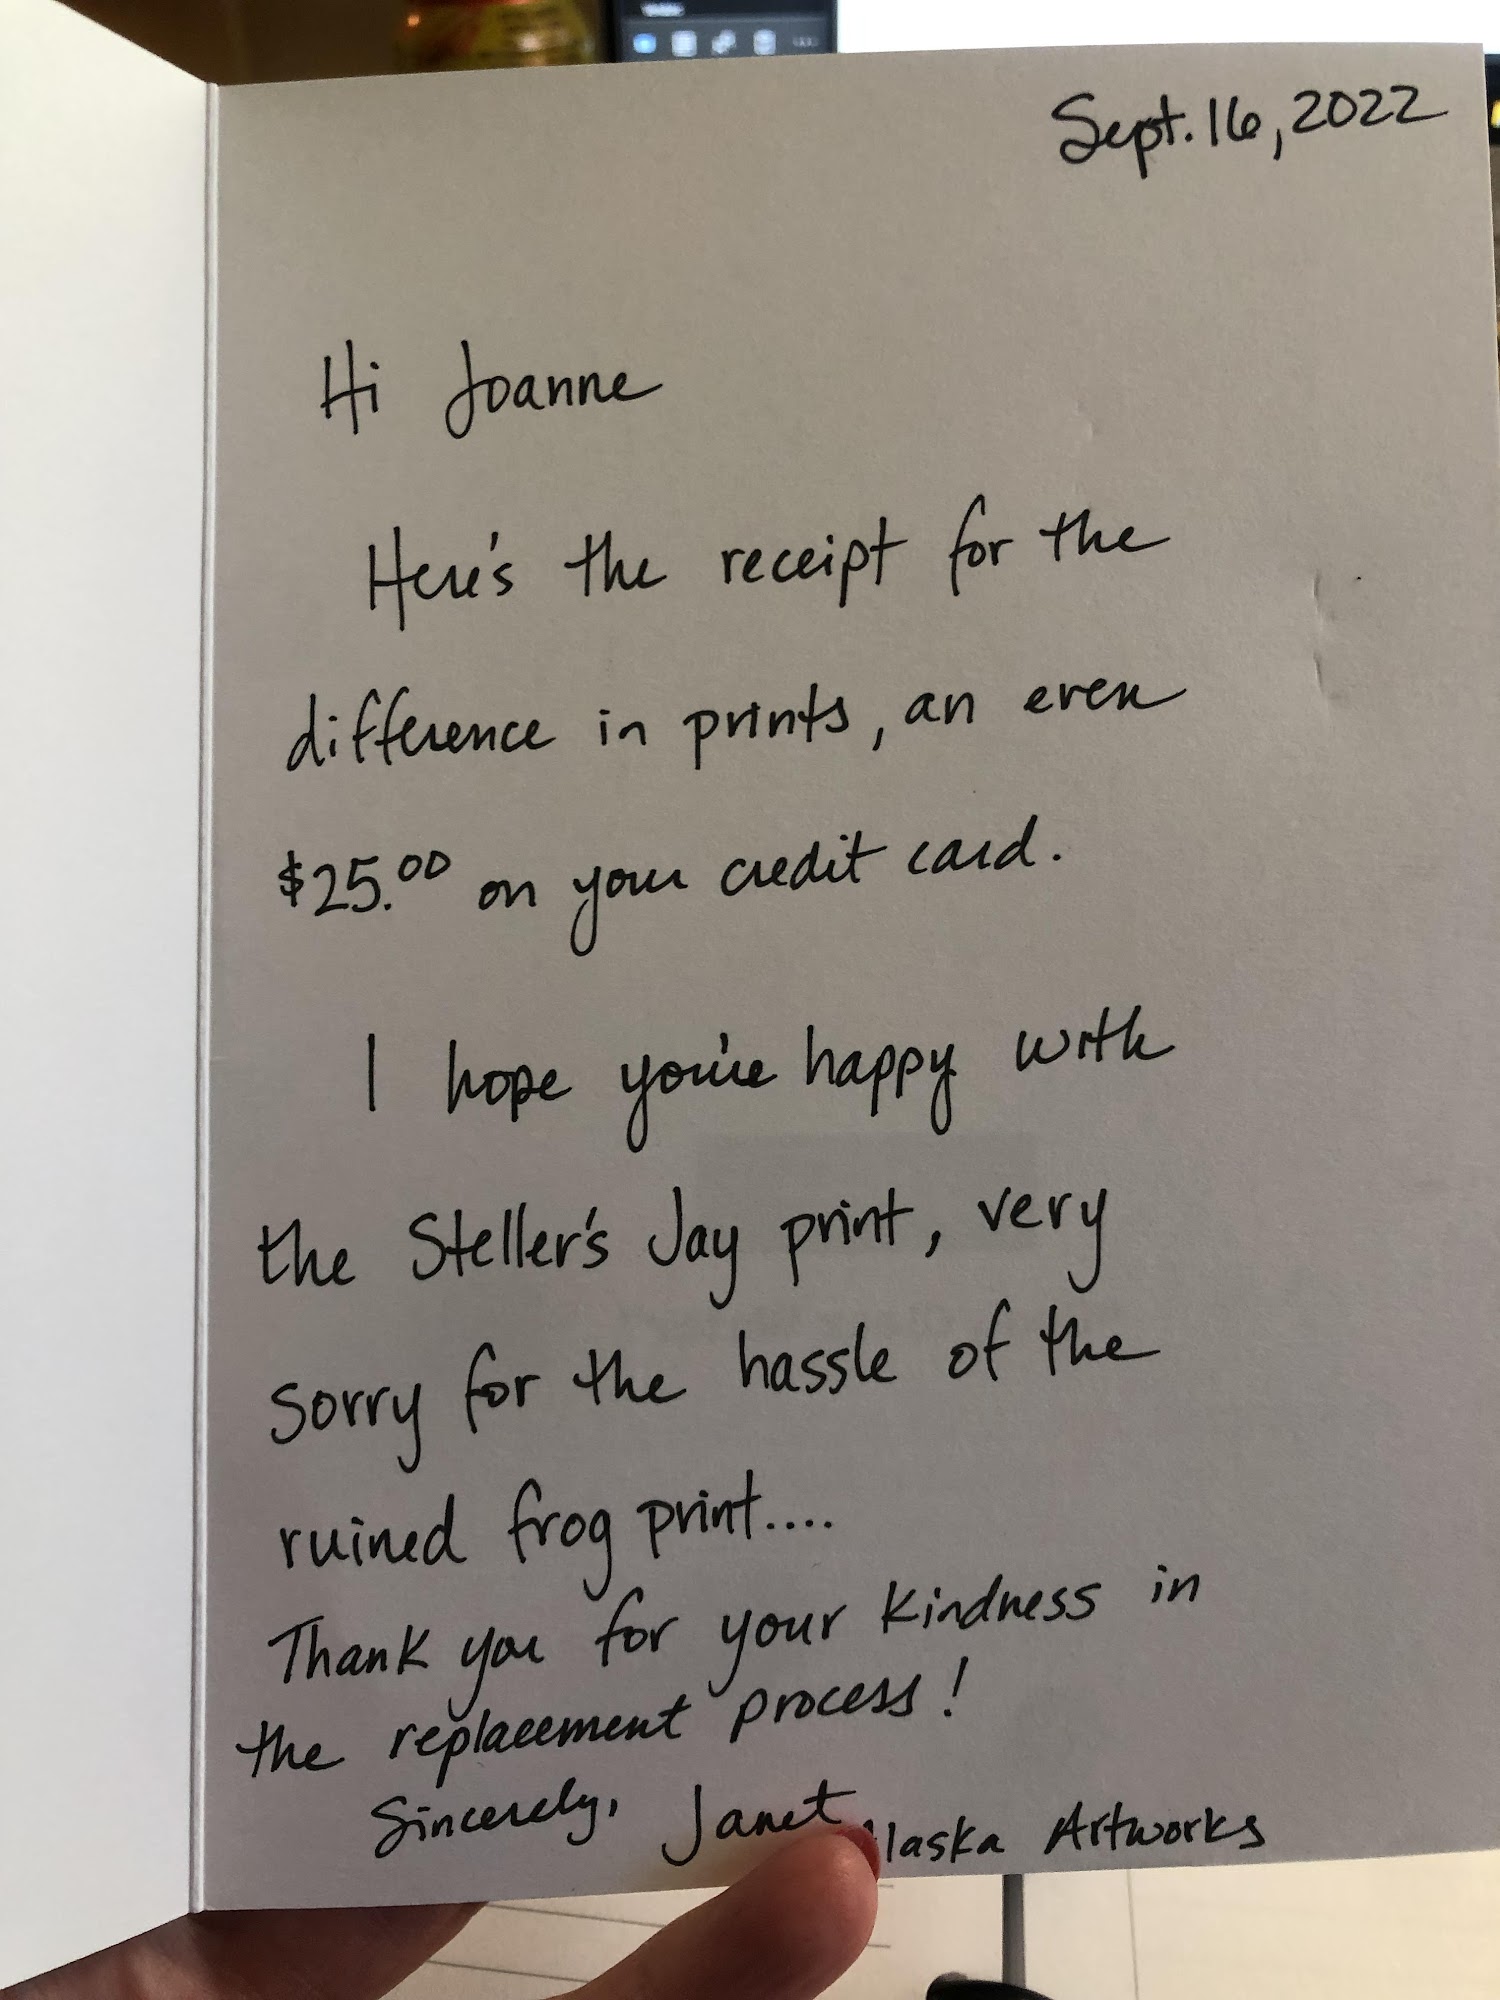 Sept. 16, 2022
Hi Joanne
Here's the receipt for the
difference in prints, an even
$25.00 on your credit card.
I hope you're happy with
the Steller's Jay print, very
sorry for the hassle of the
ruined frog print....
Thank you for your kindness in
the replacement process!
Sincerely, Janet Alaska Artworks